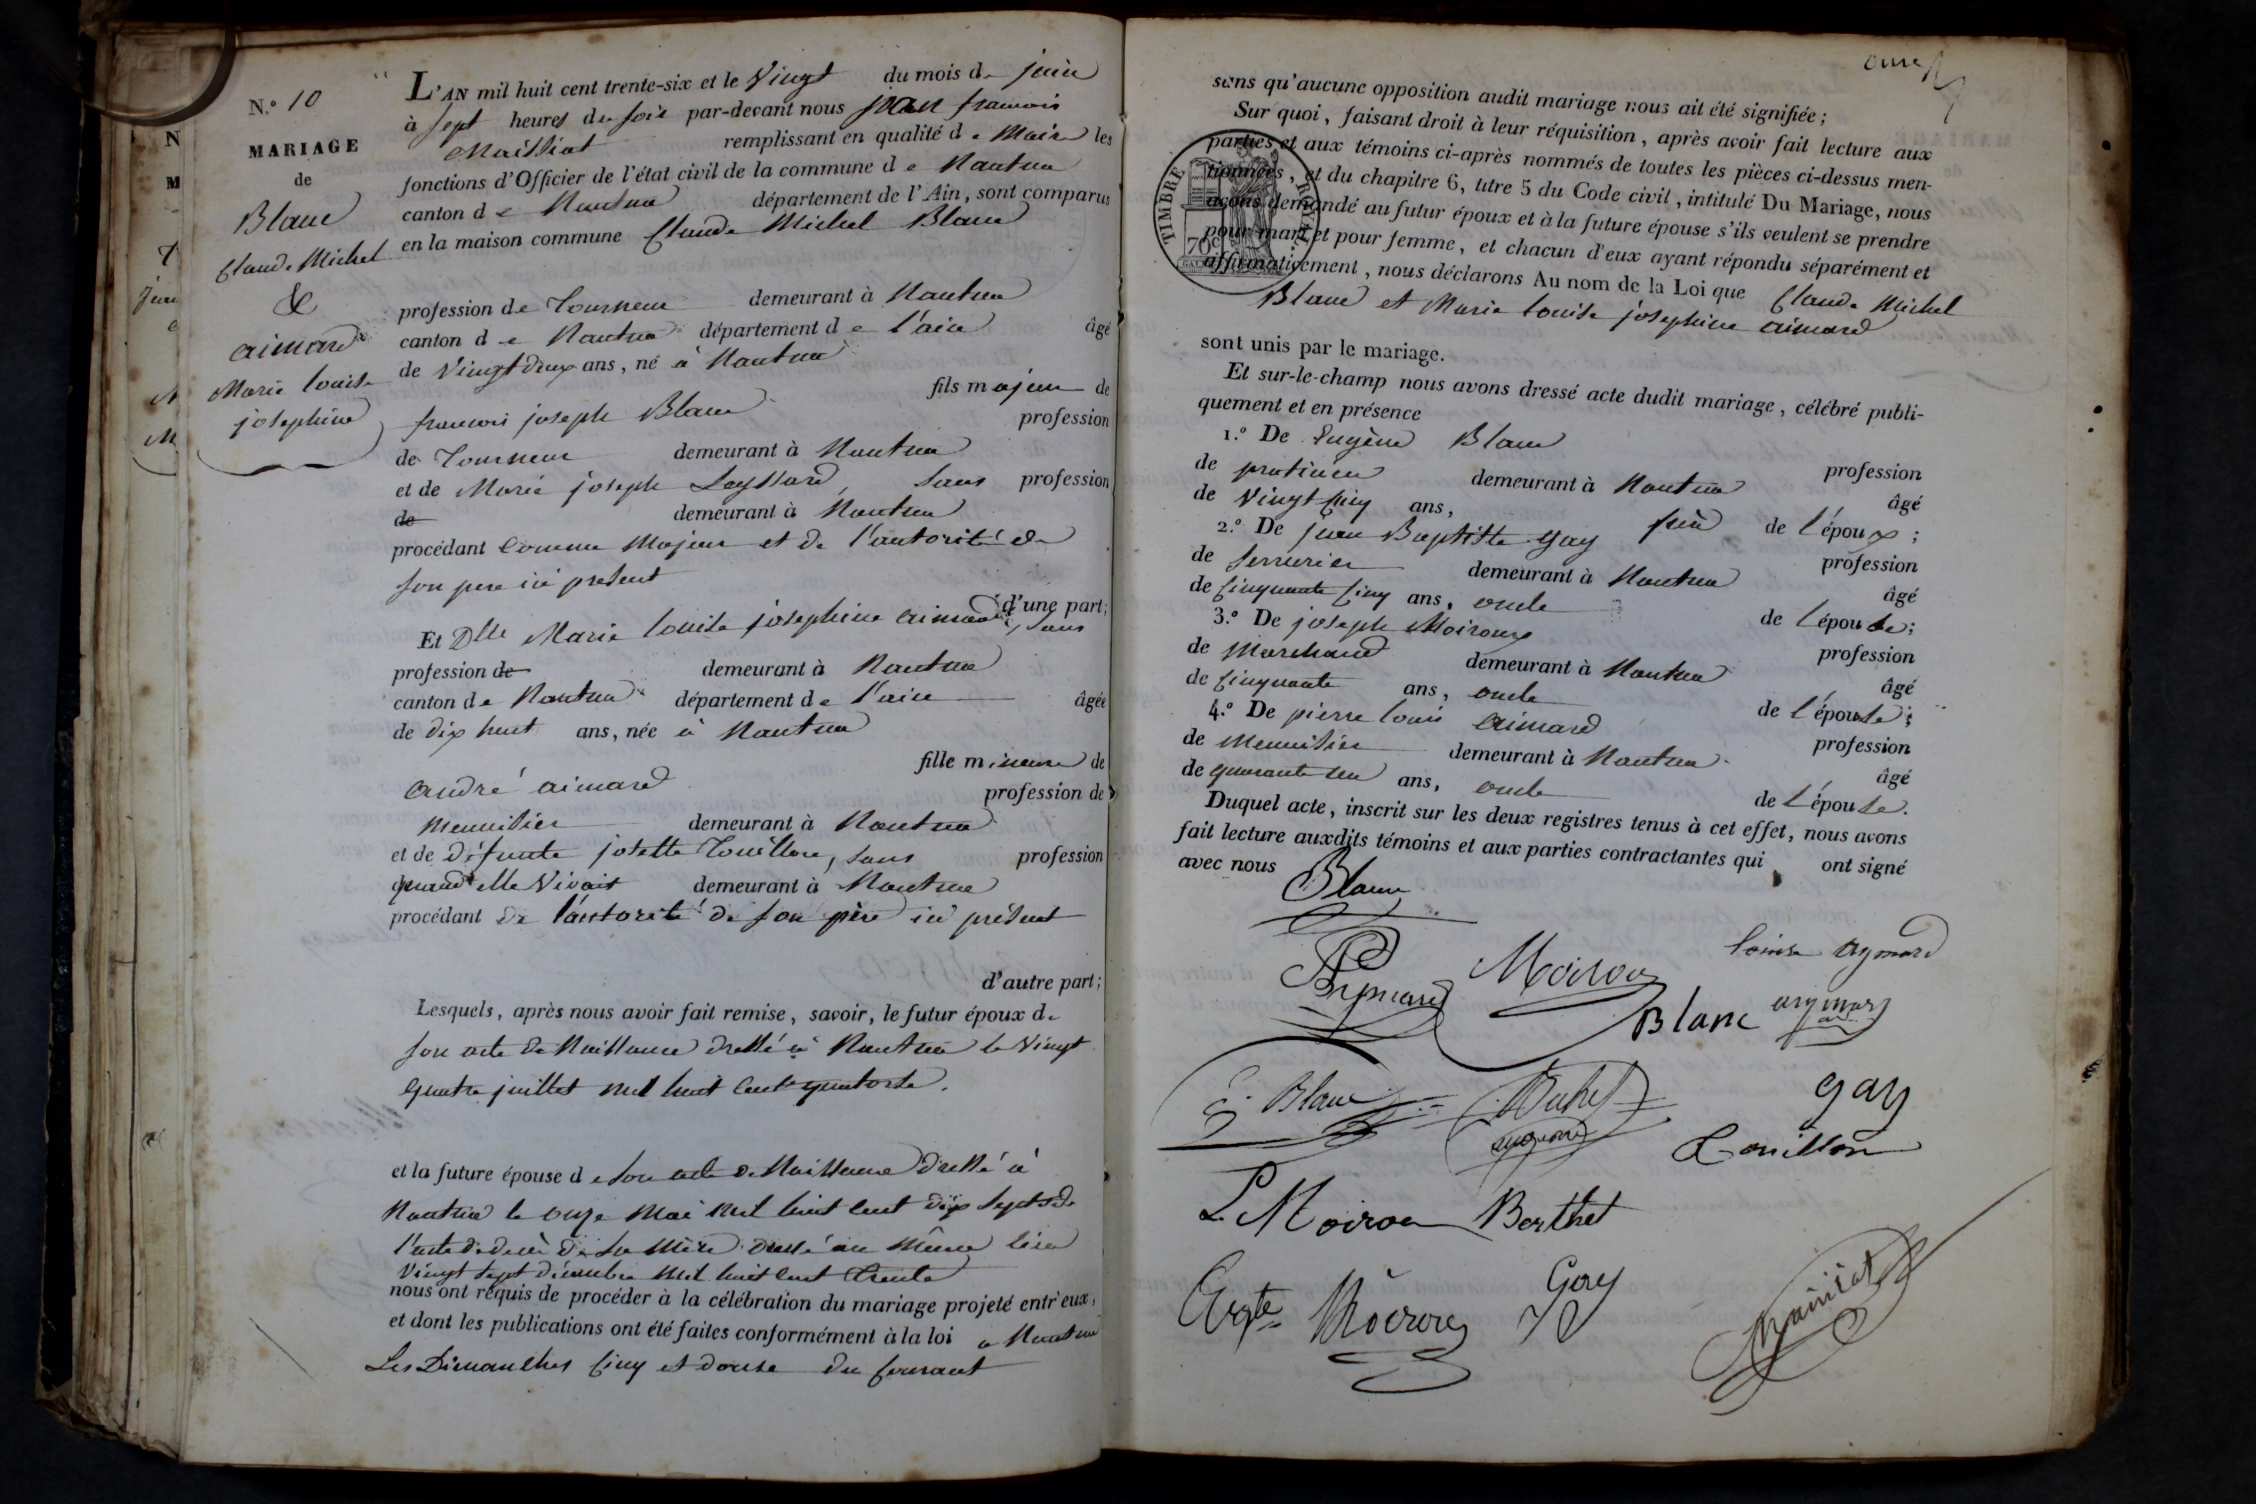 N.° 10
MARIAGE
de
Blanc
Claude Michel
&
aimard
Marie louise
josephine
L'AN mil huit cent trente-six et le Vingt du mois de juin
à sept heures du soir par-devant nous jean francois
Maissiat remplissant en qualité de Maire les
fonctions d'Officier de l'état civil de la commune de Nantua
canton de Nantua département de l'Ain, sont comparus
en la maison commune Claude Michel Blanc
profession de Tourneur demeurant à Nantua
canton de Nantua département de l'ain âgé
de Vingt deux ans, né à Nantua
fils majeur de
francois joseph Blanc profession
de Tourneur demeurant à Nantua
et de Marie joseph Leyssard, sans profession
de demeurant à Nantua
procédant comme Majeur et de l'autorité de
son pere ici présent
d'une part;
Et Dlle Marie louise josephine aimard, sans
profession de demeurant à Nantua
canton de Nantua département de l'ain âgée
de dix huit ans, née à Nantua
fille mineure de
andré aimard profession de
Menuisier demeurant à Nantua
et de défunte josette Touillon, sans profession
quand elle Vivait demeurant à Nantua
procédant de l'autorité de son père ici présent
d'autre part;
Lesquels, après nous avoir fait remise, savoir, le futur époux de
son acte de Naissance dressé à Nantua le Vingt
quatre juillet mil huit cent quatorse.
et la future épouse de son acte de Naissance dressé à
Nantua le onze Mai mil huit cent dix sept & de
l'acte de decès de sa Mère dressé au même lieu
Vingt sept décembre mil huit cent trente
nous ont requis de procéder à la célébration du mariage projeté entr'eux,
et dont les publications ont été faites conformément à la loi a Nantua
Les Dimanches Cinq et douse du Courant
sans qu'aucune opposition audit mariage nous ait été signifiée;
Sur quoi, faisant droit à leur réquisition, après avoir fait lecture aux
parties et aux témoins ci-après nommés de toutes les pièces ci-dessus men-
tionnées, et du chapitre 6, titre 5 du Code civil, intitulé Du Mariage, nous
avons demandé au futur époux et à la future épouse s'ils veulent se prendre
pour mari et pour femme, et chacun d'eux ayant répondu séparément et
affirmativement, nous déclarons Au nom de la Loi que Claude Michel
Blanc et Marie louise josephine aimard
TIMBRE ROYAL
70c
sont unis par le mariage.
Et sur-le-champ nous avons dressé acte dudit mariage, célébré publi-
quement et en présence
1.° De Eugène Blanc profession
de praticien demeurant à Nantua âgé
de Vingt Cinq ans, frère de l'époux;
2.° De jean Baptiste Gay profession
de Serrurier demeurant à Nantua âgé
de Cinquante Cinq ans, oncle de l'épouse;
3.° De joseph Moiroux profession
de Marchand demeurant à Nantua âgé
de Cinquante ans, oncle de l'épouse;
4.° De pierre louis aimard profession
de Menuisier demeurant à Nantua âgé
de quarante un ans, oncle de l'épouse.
Duquel acte, inscrit sur les deux registres tenus à cet effet, nous avons
fait lecture auxdits témoins et aux parties contractantes qui ont signé
avec nous
Blanc
louise aymard
Aymard Moiroux
Blanc aymard
E. Blanc
gay
Touillon
L. Moiroux Berthet
Moiroux Gay
Maissiat